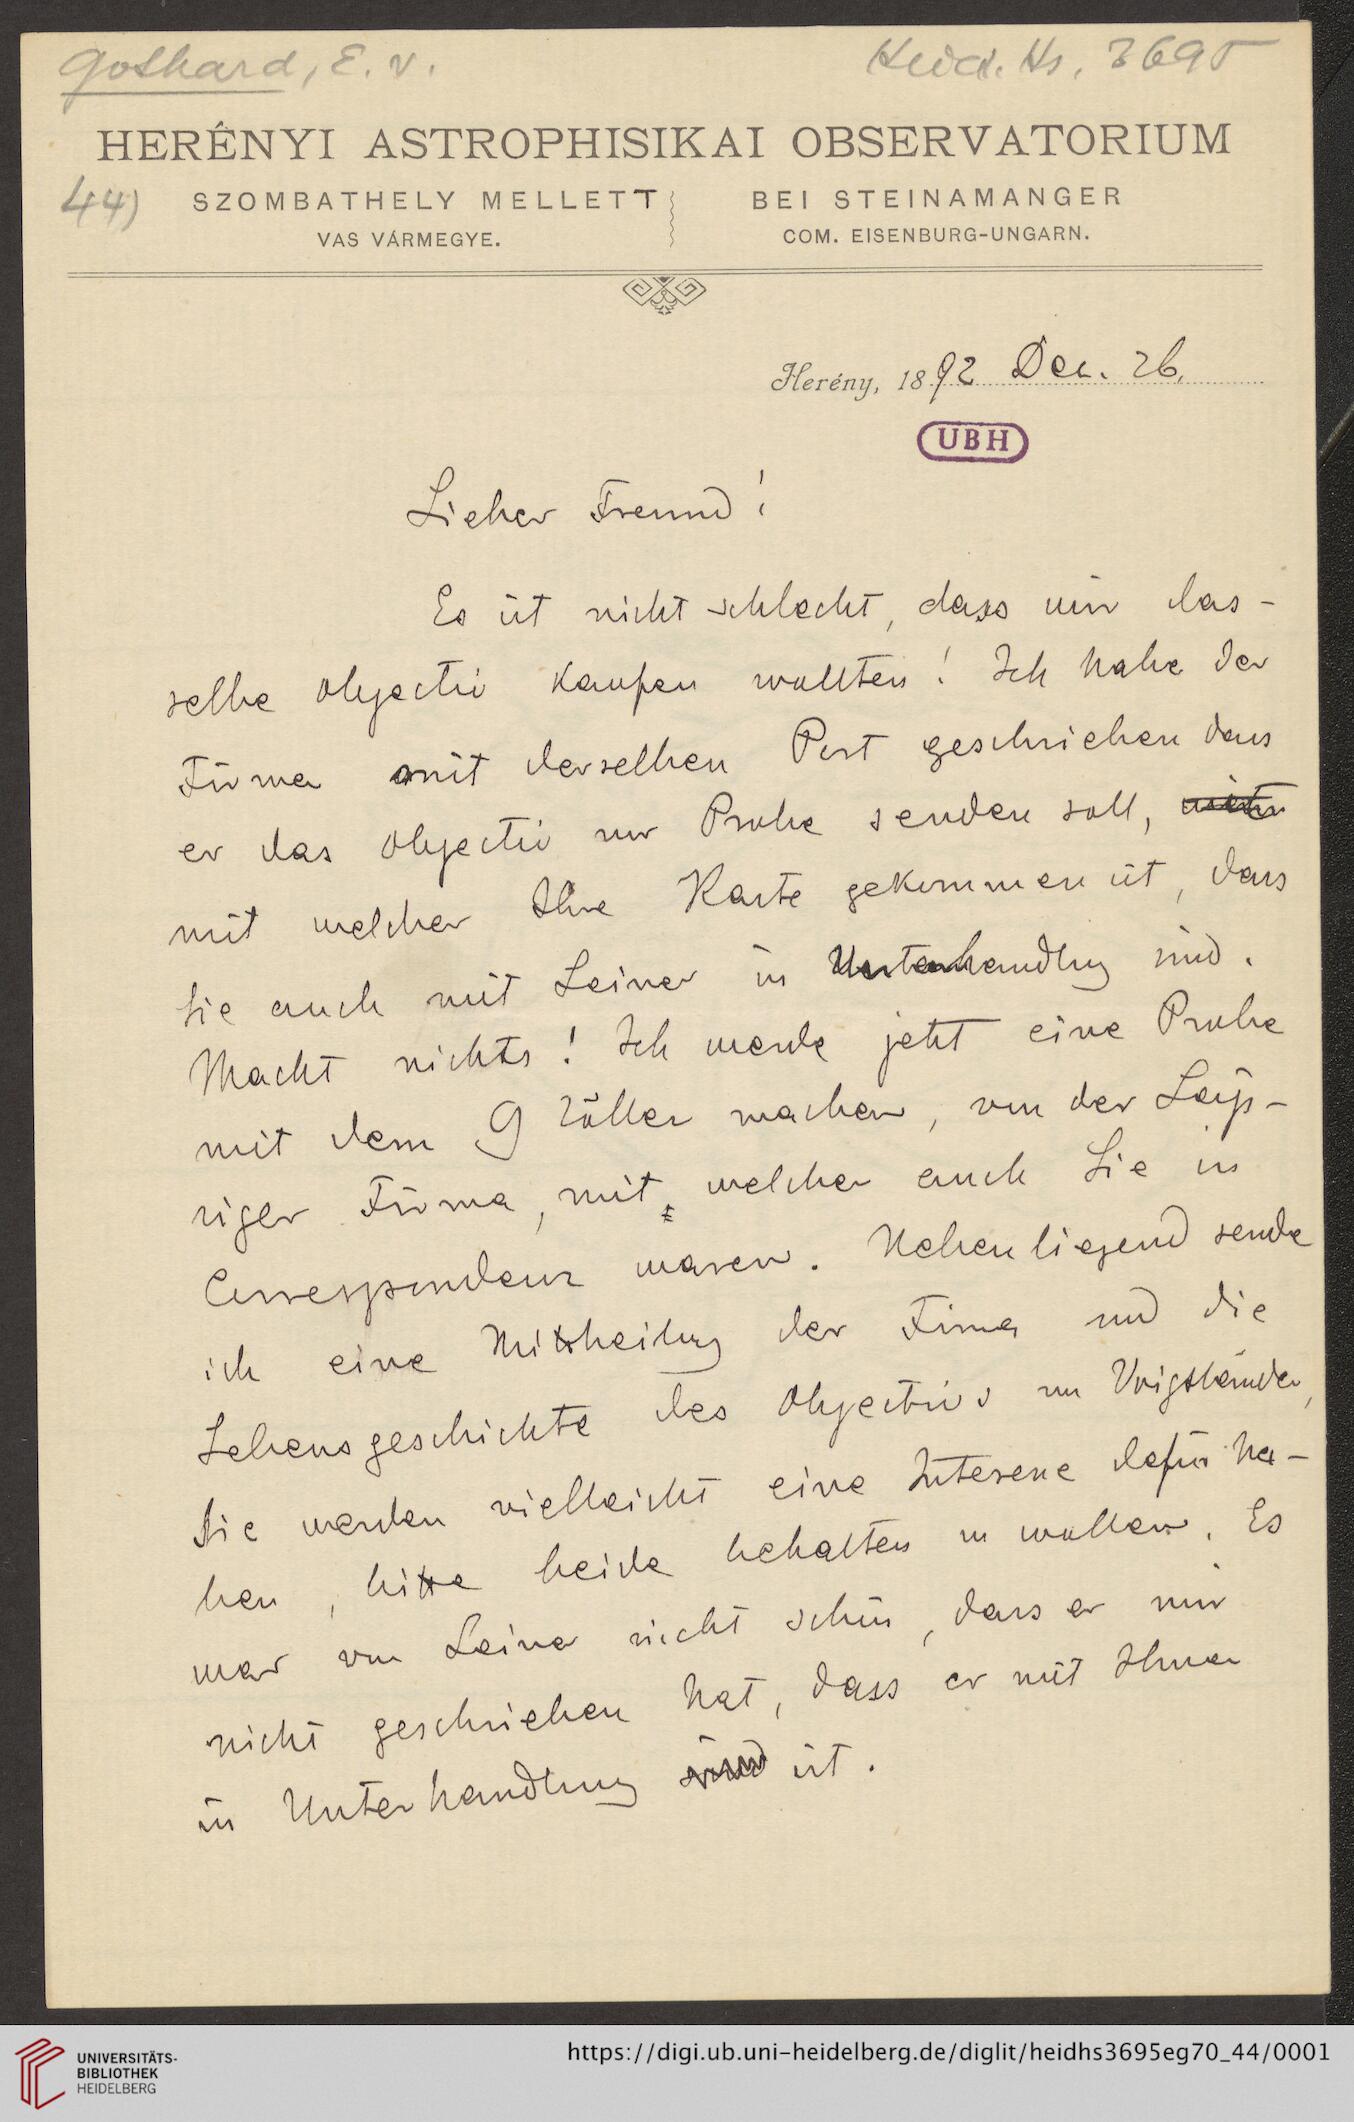 Gothard, E. v.
Heid. Hs. 3695
HERÉNYI ASTROPHISIKAI OBSERVATORIUM
44)
SZOMBATHELY MELLETT
VAS VÁRMEGYE.
BEI STEINAMANGER
COM. EISENBURG-UNGARN.
Herény, 1892 Dec. 26.
UBH
Lieber Freund!
Es ist nicht schlecht, dass wir das-
selbe Objectiv kaufen wollten! Ich habe der
Firma mit derselben Post geschrieben dass
er das Objectiv zur Probe senden soll,
mit welcher Ihre Karte gekommen ist, dass
Sie auch mit Leiner in Unterhandlung sind.
Macht nichts! Ich werde jetzt eine Probe
mit dem 9 Zöller machen, von der Leip-
ziger Firma, mit welcher auch Sie in
Correspondenz waren. Nebenliegend sende
ich eine Mittheilung der Firma und die
Lebensgeschichte des Objectivs von Voigtländer,
Sie werden vielleicht eine Interesse dafür ha-
ben, bitte beide behalten zu wollen. Es
war von Leiner nicht schön, dass er mir
nicht geschrieben hat, dass er mit Ihnen
in Unterhandlung sind ist.
UNIVERSITÄTS-
BIBLIOTHEK
HEIDELBERG
https://digi.ub.uni-heidelberg.de/diglit/heidhs3695eg70_44/0001